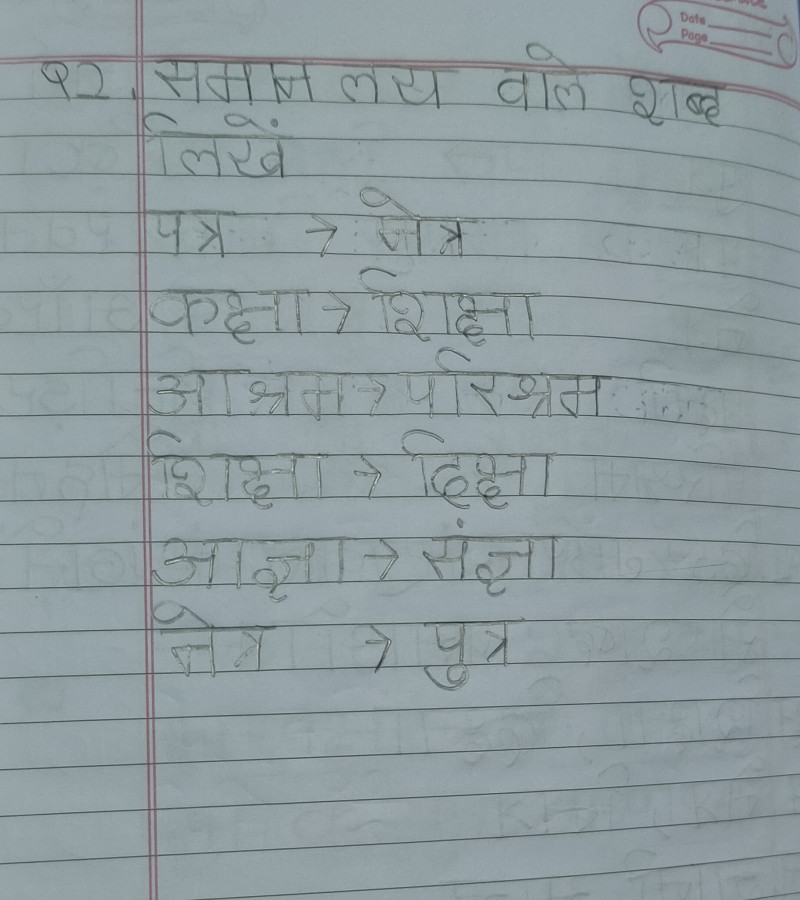 Date
Page
Q2. समान लय वाले शब्द
लिखें
पत्र → नेत्र
कक्षा → शिक्षा
आश्रम → परिश्रम
शिक्षा → दिक्षा
आज्ञा → संज्ञा
नेत्र → पुत्र